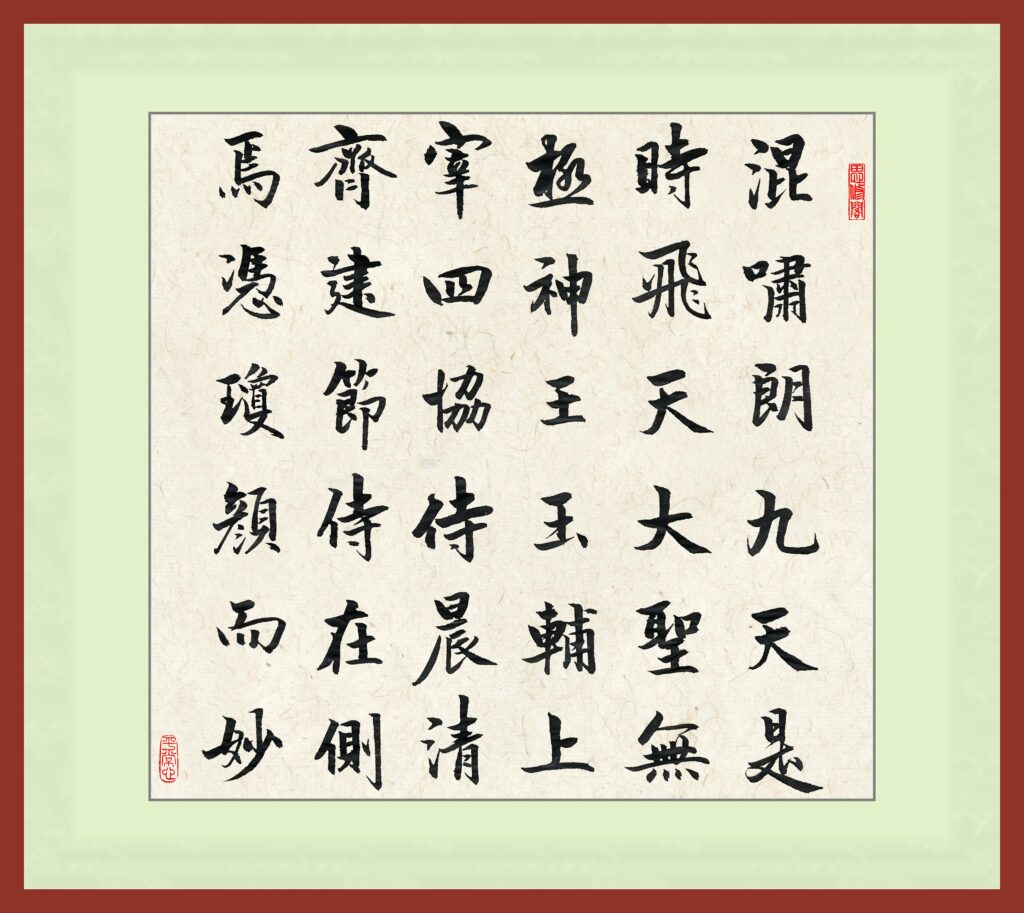 混嘯朗九天是
時飛天大聖無
極神王玉輔上
宰四協侍晨清
齊建節侍在側
焉憑瓊顏而妙
平常心